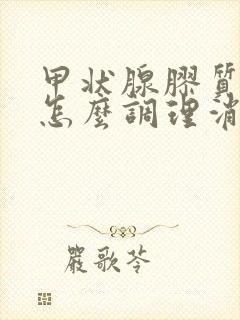 甲状腺膠質
怎麼調理消
嚴歌苓